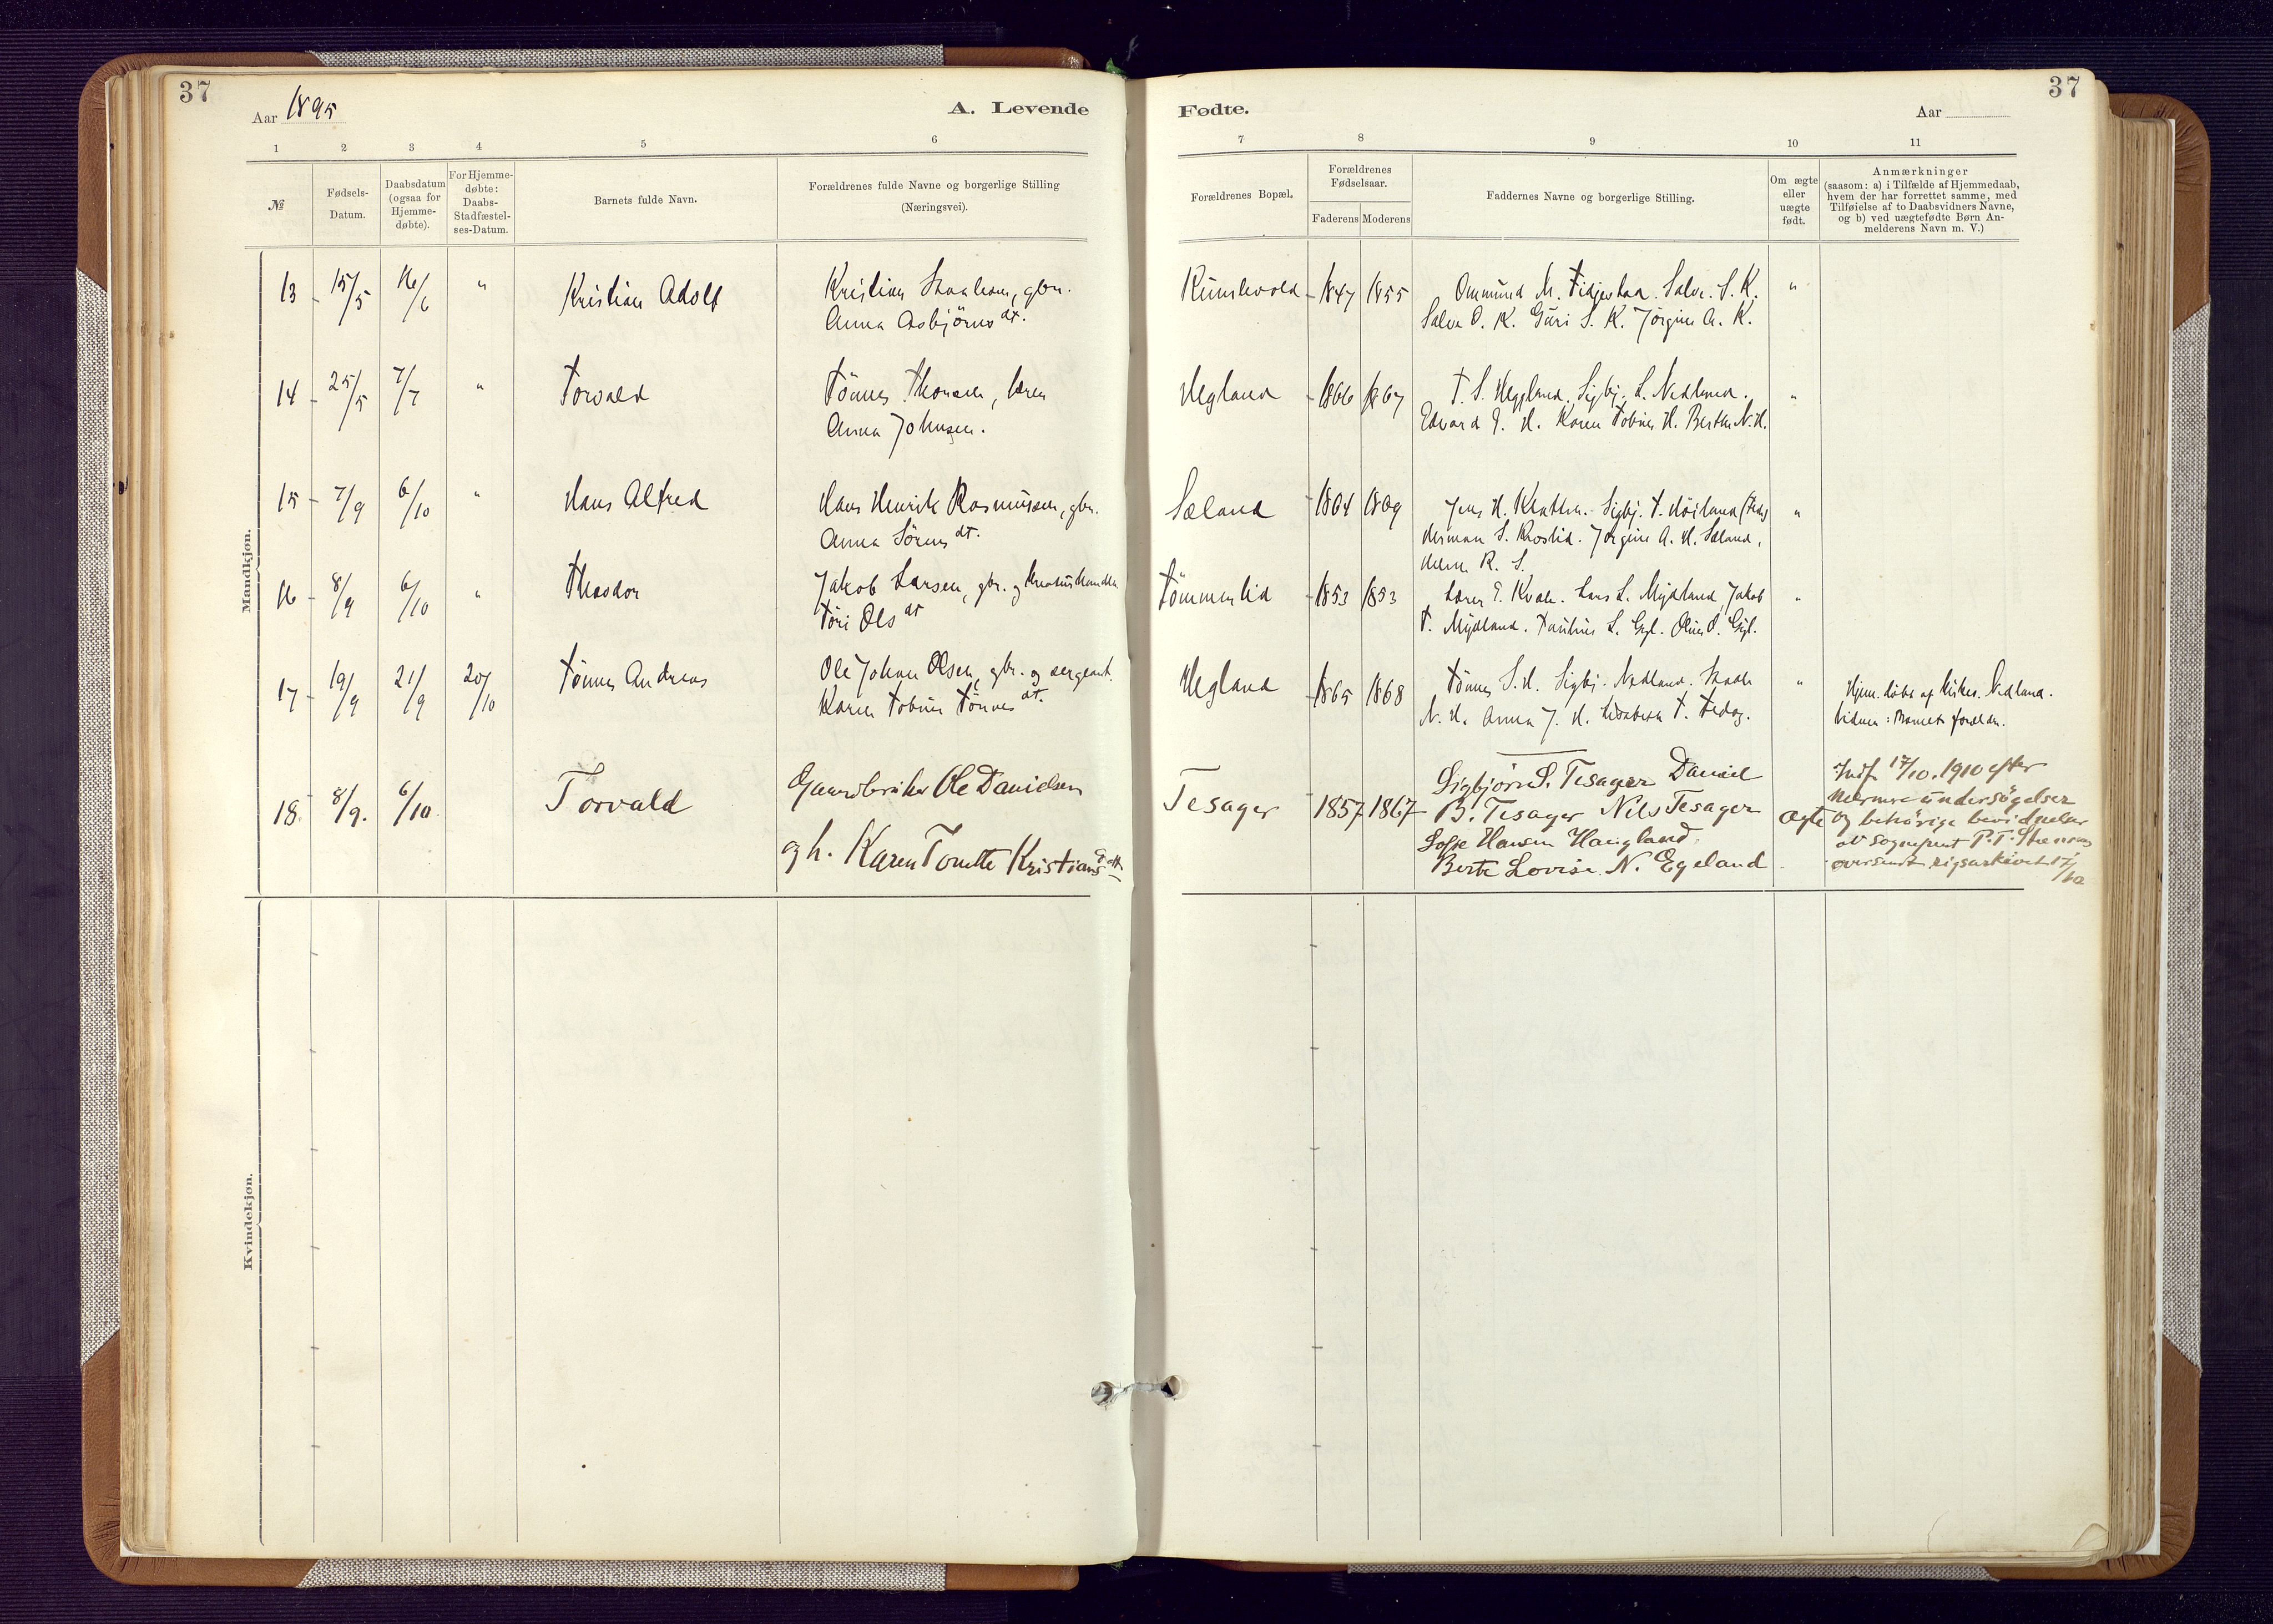 37
Aar 1895
A. Levende
1 2 3 4 5 6
№
Fødsels-Datum.
Daabsdatum (ogsaa for Hjemme-døbte).
For Hjemme-døbte: Daabs-Stadfæstel-ses-Datum.
Barnets fulde Navn.
Forældrenes fulde Navne og borgerlige Stilling
(Næringsvei).
Mandkjøn.
13 15/5 16/6 " Kristian Adolf Kristian, gbr.
Anna Asbjörnsdt.
14 25/5 7/7 " Torvald Tönnes Thomsen,
Anna Johnsen.
15 7/9 6/10 " Hans Alfred Hans Henrik Rasmussen, gbr.
Anna Sörensdt.
16 8/9 6/10 " Theodor Jakob Larsen, gbr. og
Tori Olsdt
17 19/9 21/9 20/10 Tönnes Andreas Ole Johan Olsen, gbr. og sergeant.
Karen Tobine Tönnesdt.
18 8/9. 6/10 Torvald Gaardbruker Ole Danielsen
og h. Karen Tonette Kristiansdtt
Kvindekjøn.
37
Fødte.
Aar
7 8 9 10 11
Forældrenes Bopæl.
Forældrenes Fødselsaar.
Faderens Moderens
Faddernes Navne og borgerlige Stilling.
Om ægte eller uægte født.
Anmærkninger
(saasom: a) i Tilfælde af Hjemmedaab,
hvem der har forrettet samme, med
Tilføielse af to Daabsvidners Navne,
og b) ved uægtefødte Børn An-
melderens Navn m. V.)
1847 1855 Ommund M. Salve. S. K. "
Salve O. K. Guri S. K. Jörgine A. K.
Hegland 1866 1867 T. S. Heggland. Sigbj. L. Nedland. "
Edvard E. H. Karen Tobine H. Berthe N. H.
Sæland 1864 1869 Jens H. Sigbj. T. Höiland "
Herman S. Roslid. Jörgine A. H. Sæland,
R. S.
Tömmerlid 1853 1853 Lærer E. Kvale. Lars L. Mydland, Jakob "
T. Mydland.
Hegland 1865 1868 Tönnes S. H. Sigbj. Nedland. "
N. H. Anna J. H. Elisabeth T.
Hjem. döbt af Nedland.
Vidner: Barnets foreldre.
Tesager 1857 1867 Sigbjörn S. Tesager Daniel
B. Tesager Nils Tesager ægte
Sofie Hansen Haugland,
Berte Lovise N. Egeland
Indf. 17/10. 1910 efter
nærmere undersögelser
og behörige bevidnelser
av sogneprest P. T.
oversendt rigsarkivet 17/10